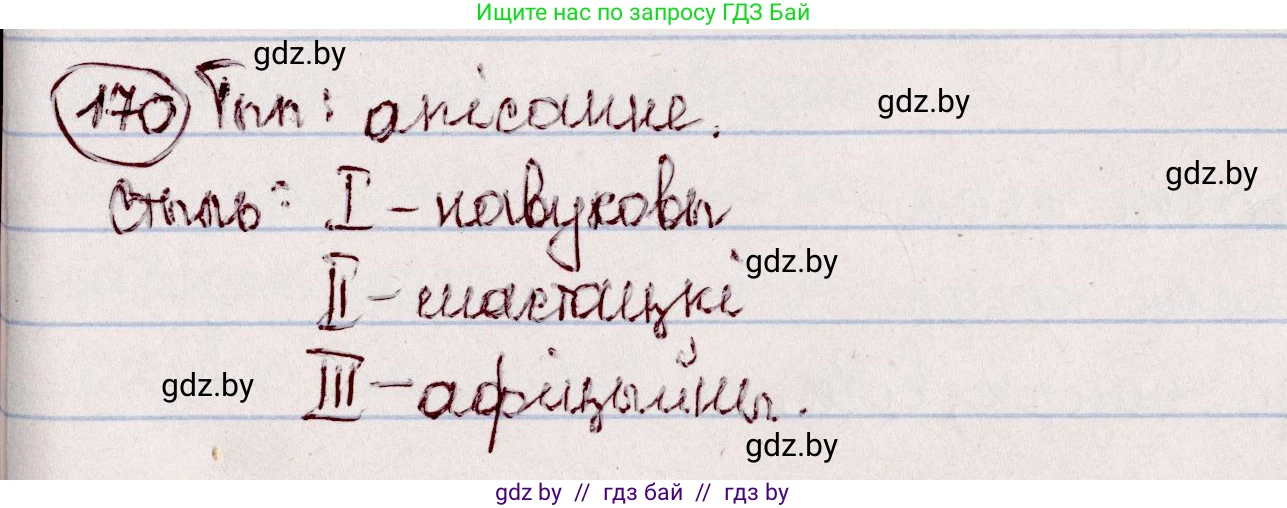 Ищите нас по запросу ГДЗ Бай
gdz.by
170 Тып: апісанне.
gdz.by
gdz.by
Стыль: I – навуковы
gdz.by
II – мастацкі
III – афіцыйны.
gdz.by
gdz.by
gdz by // гдз бай // гдз by